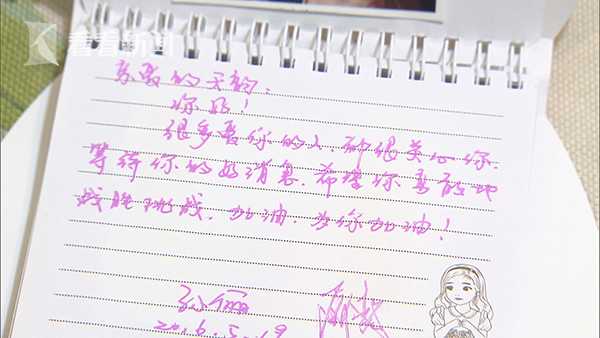 看看新闻
亲爱的天韵:
你好!
很多爱你的人,都很关心你,
等待你的好消息,希望你勇敢地
战胜挑战,加油,为你加油!
孙俪